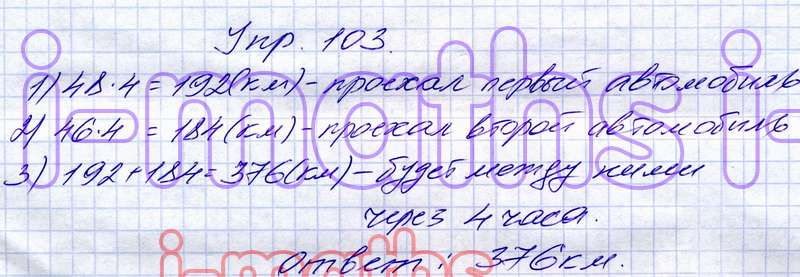 Упр. 103.
1) 48·4 = 192(км) - проехал первый автомобиль
2) 46·4 = 184(км) - проехал второй автомобиль
3) 192+184=376(км) - будет между ними
через 4 часа.
Ответ: 376км.
i-maths i-
i-maths